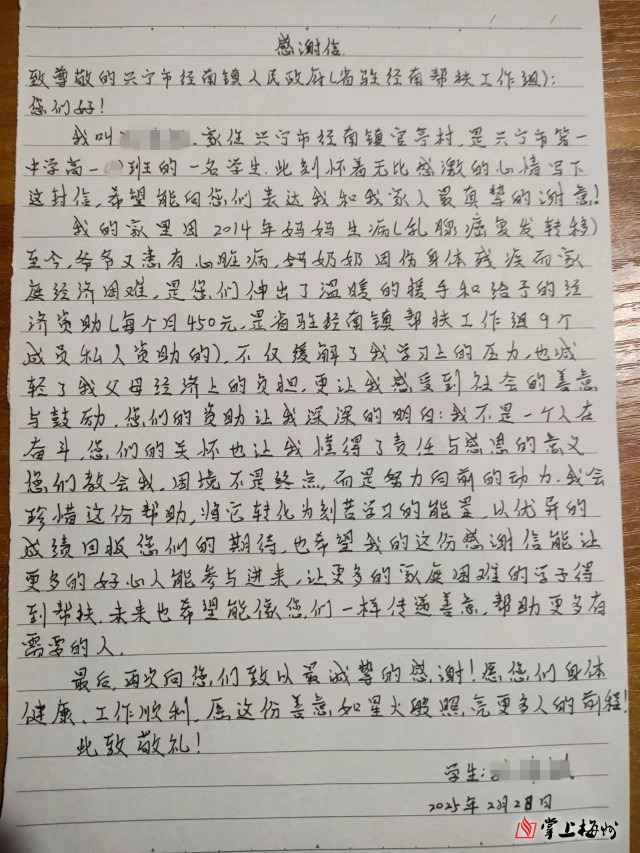 感谢信
致尊敬的兴宁市径南镇人民政府(省驻径南帮扶工作组):
您们好!
我叫 家住兴宁市径南镇宫亭村,是兴宁市第一
中学高一( )班的一名学生.此刻怀着无比感激的心情写下
这封信,希望能向您们表达我和我家人最真挚的谢意!
我的家里因2014年妈妈生病(乳腺癌复发转移)
至今,爷爷又患有心脏病,奶奶因伤身体残疾而家
庭经济困难,是您们伸出了温暖的援手和给予的经
济资助(每个月450元,是省驻径南镇帮扶工作组9个
成员私人资助的),不仅缓解了我学习上的压力,也减
轻了我父母经济上的负担,更让我感受到社会的善意
与鼓励,您们的资助让我深深的明白:我不是一个人在
奋斗,您们的关怀也让我懂得了责任与感恩的意义
您们教会我,困境不是终点,而是努力向前的动力.我会
珍惜这份帮助,将它转化为刻苦学习的能量,以优异的
成绩回报您们的期待,也希望我的这份感谢信能让
更多的好心人能参与进来,让更多的家庭困难的学子得
到帮扶.未来也希望能像您们一样传递善意,帮助更多有
需要的人.
最后,再次向您们致以最诚挚的感谢!愿您们身体
健康、工作顺利,愿这份善意如星火般照亮更多人的前程!
此致敬礼!
学生:
2025年2月28日
掌上梅州